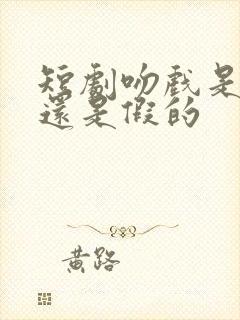 短劇吻戲是
還是假的
黃路